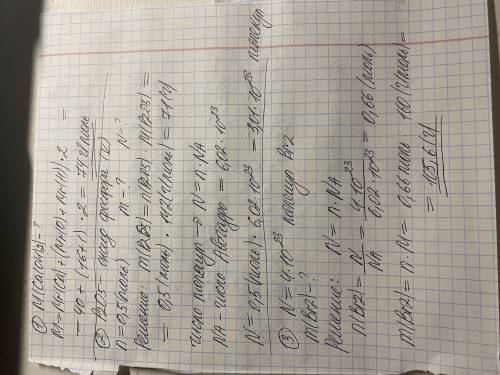 ① M(Ca(OH)2) - ?
M = Ar(Ca) + (Ar(O) + Ar(H)) · 2 =
= 40 + (16+1) · 2 = 74 г/моль
② P2O5 - оксид фосфора (V)
n = 0,5 (моль) m - ? N - ?
Решение: m(P2O5) = n(P2O5) · M(P2O5) =
= 0,5 (моль) · 142 (г/моль) = 71 (г)
Число молекул → N = n · NA
NA - число Авогадро = 6,02 · 10²³
N = 0,5 (моль) · 6,02 · 10²³ = 3,01 · 10²³ молекул
③ N = 4 · 10²³ молекул Br2
m(Br2) - ?
Решение: N = n · NA
n(Br2) = N / NA = 4 · 10²³ / 6,02 · 10²³ = 0,66 (моль)
m(Br2) = n · M = 0,66 моль · 160 (г/моль) =
= 105,6 (г)